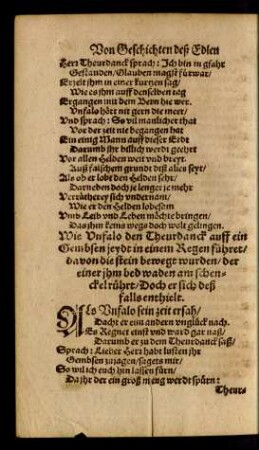 Von Geschichten deß Edlen
Herr Theurdanck sprach: Ich bin in gfahr
Gestanden/ Glauben magst fürwar/
Erzelt jhm in einer kurtzen sag/
Wie es jhm auff denselben tag
Ergangen mit dem Bern hie wer.
Vnfalo hört nit gern die meer/
Vnd sprach: So vil manlicher that
Vor der zeit nie begangen hat
Ein einig Mann auff dieser Erdt
Darumb jhr billich werdt geehrt
Vor allen Helden weit vnd breyt.
Auß falschem grundt diß alles seyt/
Als ob er lobt den Helden sehr/
Darneben doch je lenger je mehr
Verrähterey sich vndernam/
Wie er den Helden lobesam
Vmb Leib vnd Leben möchte bringen/
Das jhm kems wegs doch wolt gelingen.
Wie Vnfalo den Theurdanck auff ein
Gembsen jeydt in einem Regen führet/
davon die stein bewegt wurden/ der
einer jhm bed waden am schen-
ckel rührt/ Doch er sich deß
falls enthielt.
ALs Vnfalo sein zeit ersah/
Dacht er eim andern vnglück nach.
Es Regnet einst vnd ward gar naß/
Darumb er zu dem Theurdanck saß/
Sprach: Lieber Herr habt lusten jhr
Gembsen zujagen/ sagets mir/
So wil ich euch hin lassen fürn/
Da jhr der ein groß meng werdt spürn:
Theur-